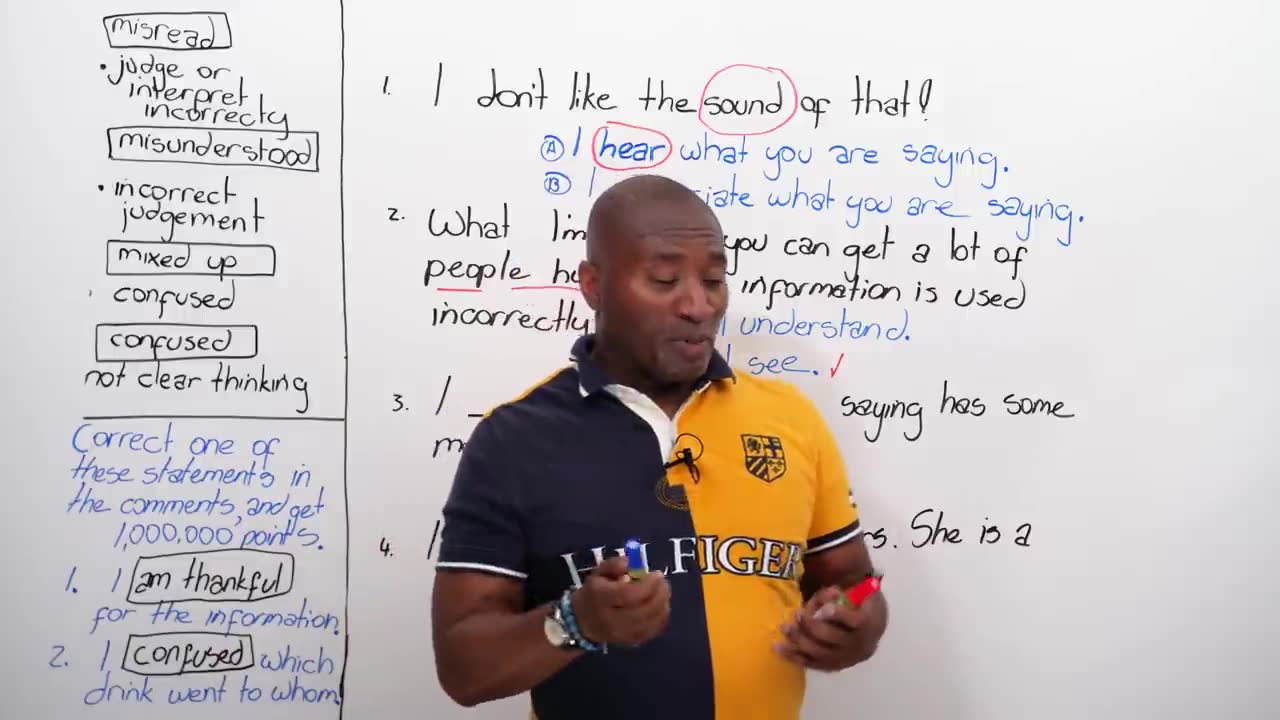 misread
• judge or
interpret
incorrecty
misunderstood
• incorrect
judgement
mixed up
confused
confused
not clear thinking
Correct one of
these statements in
the comments, and get
1,000,000 points.
1. I am thankful
for the information.
2. I confused which
drink went to whom.
1. I don't like the sound of that!
A I hear what you are saying.
B I what you are saying.
2. What I'm you can get a lot of
people information is used
incorrectly understand.
I see. ✓
3. I saying has some
4. I She is a
HILFIGER